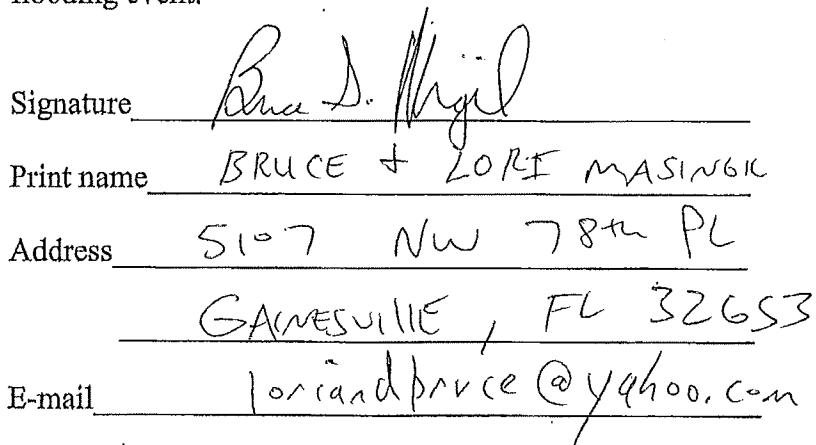 flooding event.
Signature Bruce D.
Print name BRUCE + LORI MASINGIL
Address 5107 NW 78th PL
GAINESVILLE, FL 32653
E-mail loriandbruce@yahoo.com